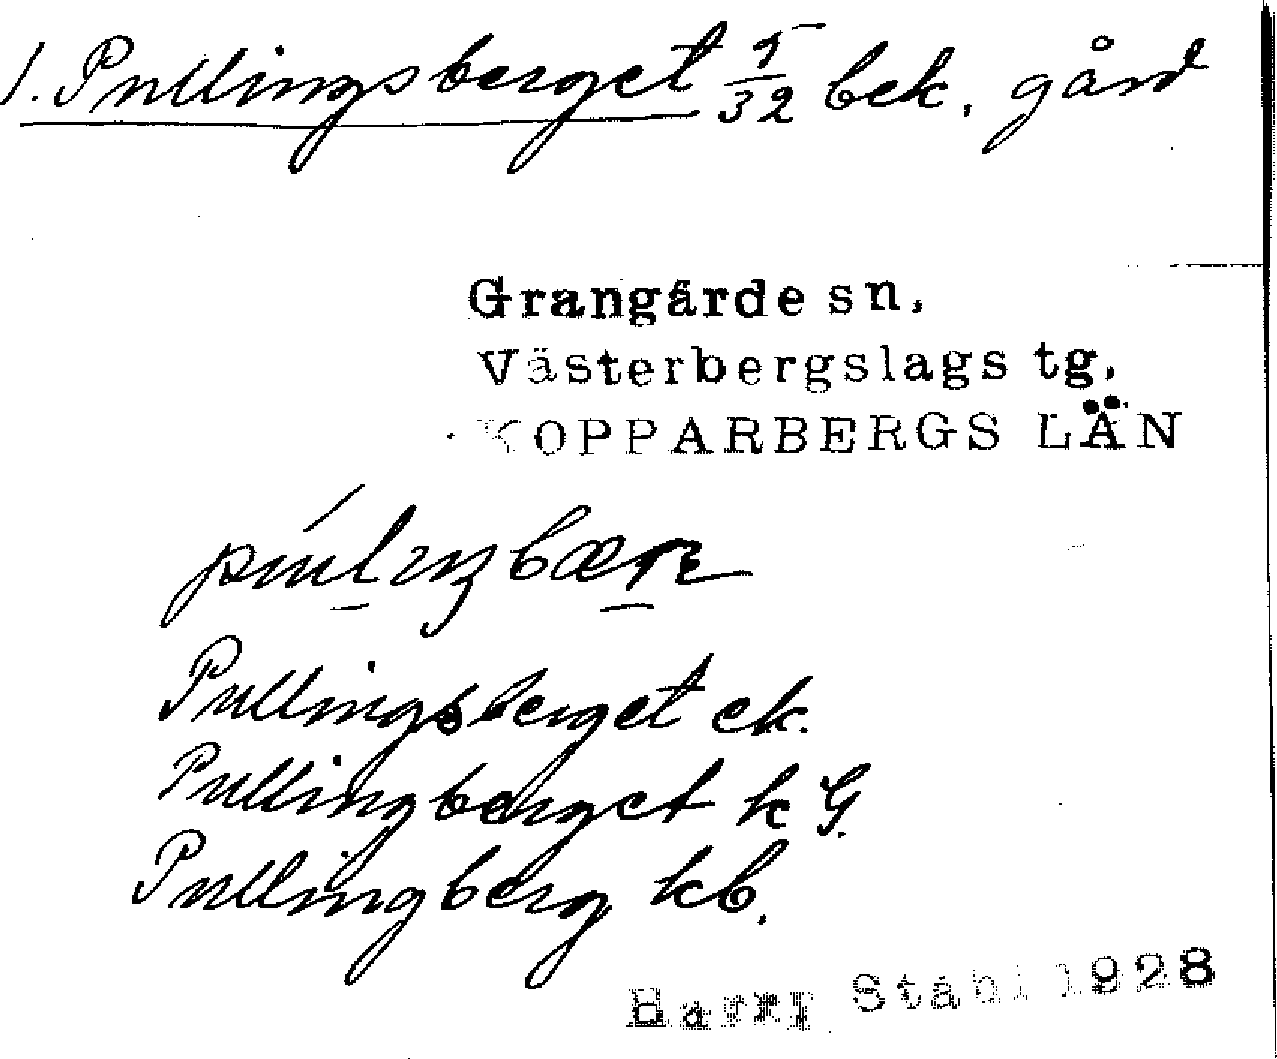 1. Pullingsberget 5/32 bek. gård
Grangärde sn.
Västerbergslags tg.
KOPPARBERGS LÄN
Pullingsberget ek.
Pullingberget k G.
Pullingberg kb.
Harry Ståhl 1928